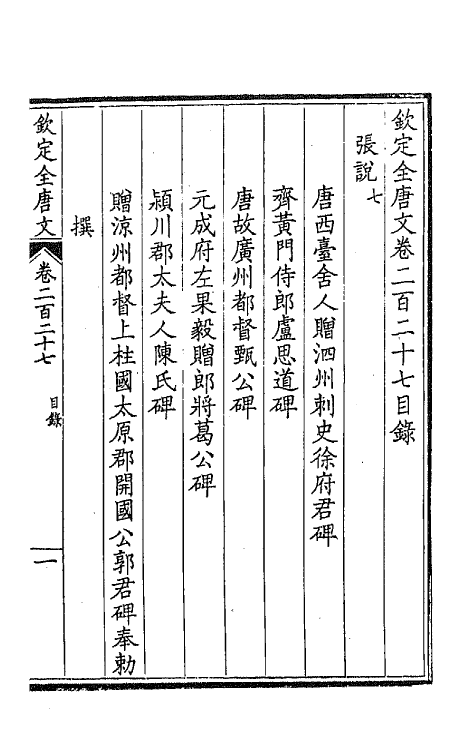 欽定全唐文卷二百二十七目錄
張說七
唐西臺舍人贈泗州刺史徐府君碑
齊黃門侍郎盧思道碑
唐故廣州都督甄公碑
元成府左果毅贈郎將葛公碑
潁川郡太夫人陳氏碑
贈涼州都督上柱國太原郡開國公郭君碑奉勅
撰
欽定全唐文
卷二百二十七
目錄
一